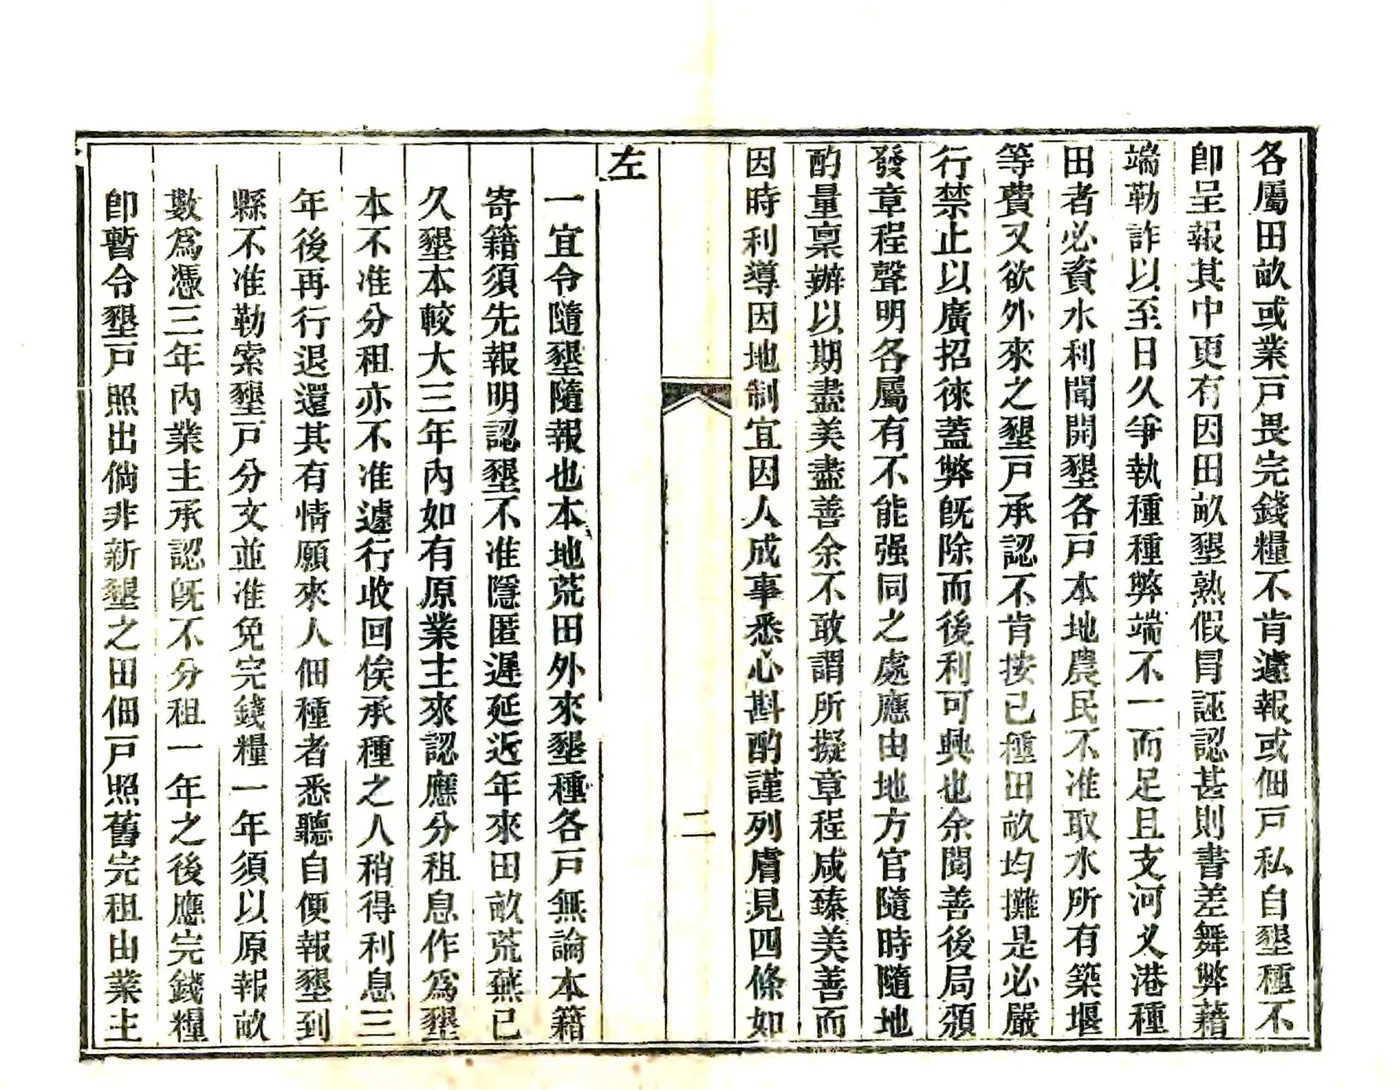 各屬田畝或業戸畏完錢糧不肯遽報或佃戸私自墾種不
卽呈報其中更有因田畝墾熟假冐誣認甚則書差舞弊藉
端勒詐以至日久爭執種種弊端不一而足且支河义港種
田者必資水利聞開墾各戸本地農民不准取水所有築堰
等費又欲外來之墾戸承認不肯按已種田畝均攤是必嚴
行禁止以廣招徠蓋弊旣除而後利可興也余閱善後局頒
發章程聲明各屬有不能强同之處應由地方官隨時隨地
酌量稟辦以期盡美盡善余不敢謂所擬章程咸臻美善而
因時利導因地制宜因人成事悉心斟酌謹列膚見四條如
二
左
一宜令隨墾隨報也本地荒田外來墾種各戸無論本籍
寄籍須先報明認墾不准隱匿遲延近年來田畝荒蕪已
久墾本較大三年內如有原業主來認應分租息作爲墾
本不准分租亦不准遽行收回俟承種之人稍得利息三
年後再行退還其有情願來人佃種者悉聽自便報墾到
縣不准勒索墾戸分文並准免完錢糧一年須以原報畝
數爲憑三年內業主承認旣不分租一年之後應完錢糧
卽暫令墾戸照出倘非新墾之田佃戸照舊完租由業主